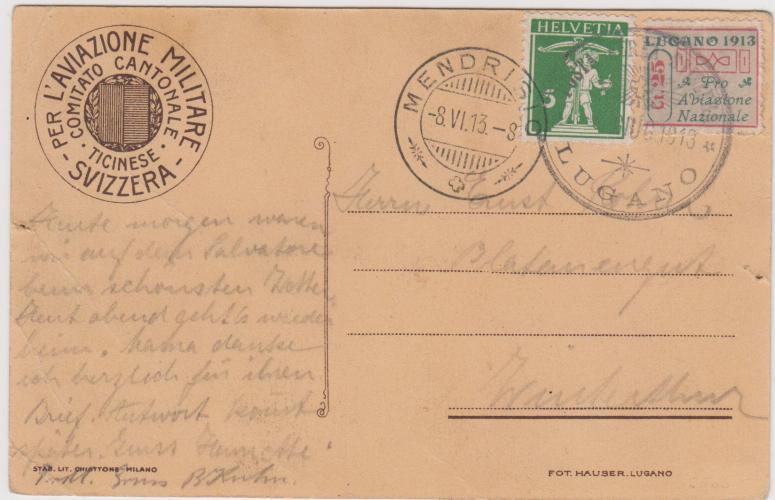 PER L'AVIAZIONE MILITARE
COMITATO CANTONALE
TICINESE
SVIZZERA
MENDRISIO
-8.VI.13.-8
HELVETIA
5
LUGANO 1913
Ct. 25
Pro
Aviazione
Nazionale
1913
LUGANO
Heute morgen waren
wir auf dem Salvatore
beim schönsten Wetter
Heut abend geht's wieder
heim. Mama dankt
ich herzlich für ihren
Brief. Antwort kommt
später. Gruss
Herrn Ernst
Winterthur
STAB. LIT. CHIATTONE-MILANO
FOT. HAUSER. LUGANO